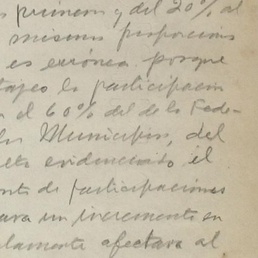 y del 20% al
mismas proporcion
es errónea porque
la participacion
el 60% del de la Fede-
los Municipios, del
evidenciado el
de participaciones
un incremento en
lamente afectara al